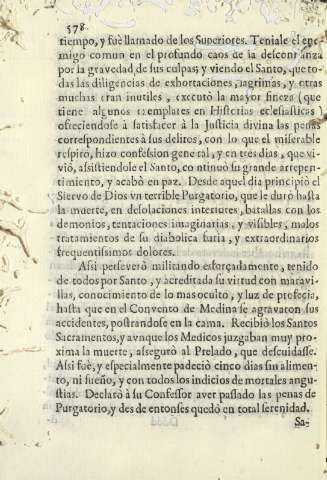 578
tiempo, y fuè llamado de los Superiores. Teniale el ene-
migo comun en el profundo caos de la desconfianza
por la gravedad de sus culpas; y viendo el Santo, que to-
das las diligencias de exhortaciones, lagrimas, y otras
muchas eran inutiles, executò la mayor fineza (que
tiene algunos exemplares en Historias eclesiasticas)
ofreciendose à satisfacer à la Justicia divina las penas
correspondientes à sus delitos, con lo que el miserable
respirò, hizo confession general, y en tres dias, que vi-
viò, assistiendole el Santo, continuò su grande arrepen-
timiento, y acabò en paz. Desde aquel dia principiò el
Siervo de Dios vn terrible Purgatorio, que le durò hasta
la muerte, en desolaciones interiores, batallas con los
demonios, tentaciones imaginarias, y visibles, malos
tratamientos de su diabolica furia, y extraordinarios
frequentissimos dolores.
Assi perseverò militando esforçadamente, tenido
de todos por Santo, y acreditada su virtud con maravi-
llas, conocimiento de lo mas oculto, y luz de profecia,
hasta que en el Convento de Medina se agravaron sus
accidentes, postrandose en la cama. Recibiò los Santos
Sacramentos, y aunque los Medicos juzgaban muy pro-
xima la muerte, assegurò al Prelado, que descuidasse.
Assi fuè, y especialmente padeciò cinco dias sin alimen-
to, ni sueño, y con todos los indicios de mortales angu-
stias. Declarò à su Confessor aver passado las penas de
Purgatorio, y des de entonses quedò en total serenidad.
Sa-